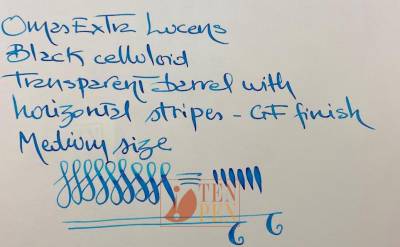 Omas Extra Lucens
Black celluloid
Transparent barrel with
horizontal stripes - GF finish
Medium size
TEN
PEN